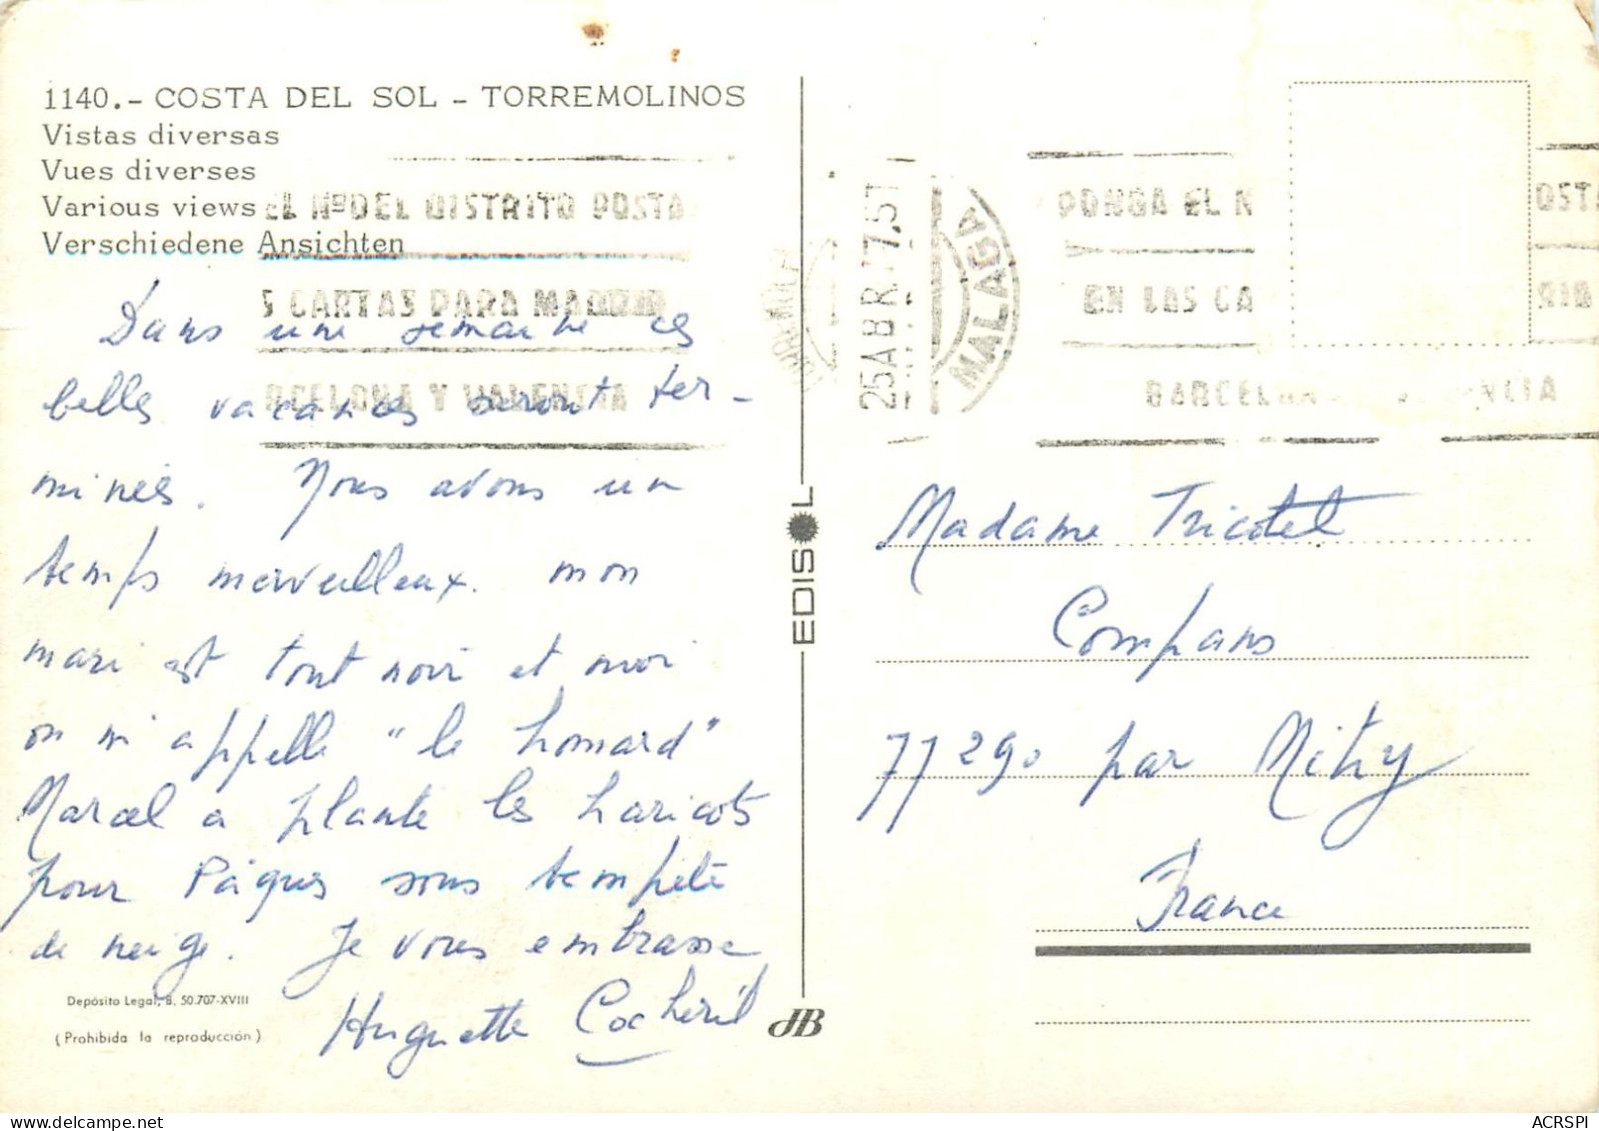 1140.- COSTA DEL SOL - TORREMOLINOS
Vistas diversas
Vues diverses
Various views
Verschiedene Ansichten
EL Nº DEL DISTRITO POSTA
S CARTAS PARA MADRID
RCELONA Y VALENCIA
Dans une semaine ces
belles vacances seront ter-
minées. Nous avons un
temps merveilleux. mon
mari est tout noir et moi
on m'appelle "le homard"
Marcel a planté les haricots
pour Pâques sous tempête
de neige. Je vous embrasse
Huguette Cocheril
Depósito Legal, B. 50.707-XVIII
(Prohibida la reproducción)
EDISOL
JB
25 ABR 77
MALAGA
PONGA EL N
OSTA
Y
EN LAS CA
RID
BARCELONA
NCIA
Madame Tricotel
Compans
77290 par Mitry
France
ACRSPI